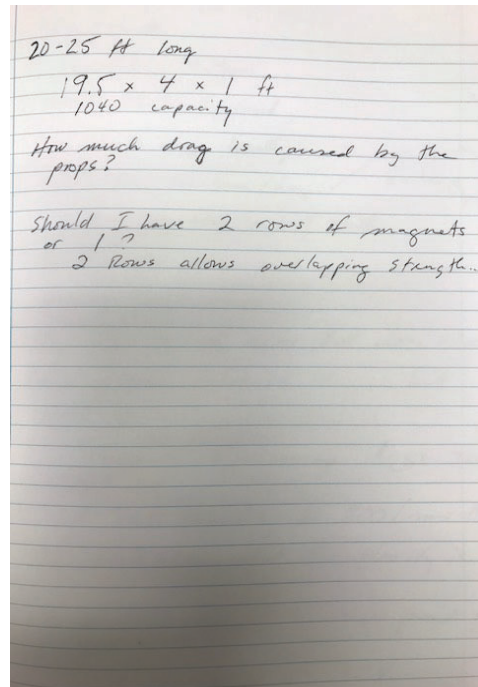 20-25 ft long
19.5 x 4 x 1 ft
1040 capacity
How much drag is caused by the
props?
Should I have 2 rows of magnets
or 1?
2 Rows allows overlapping strength..